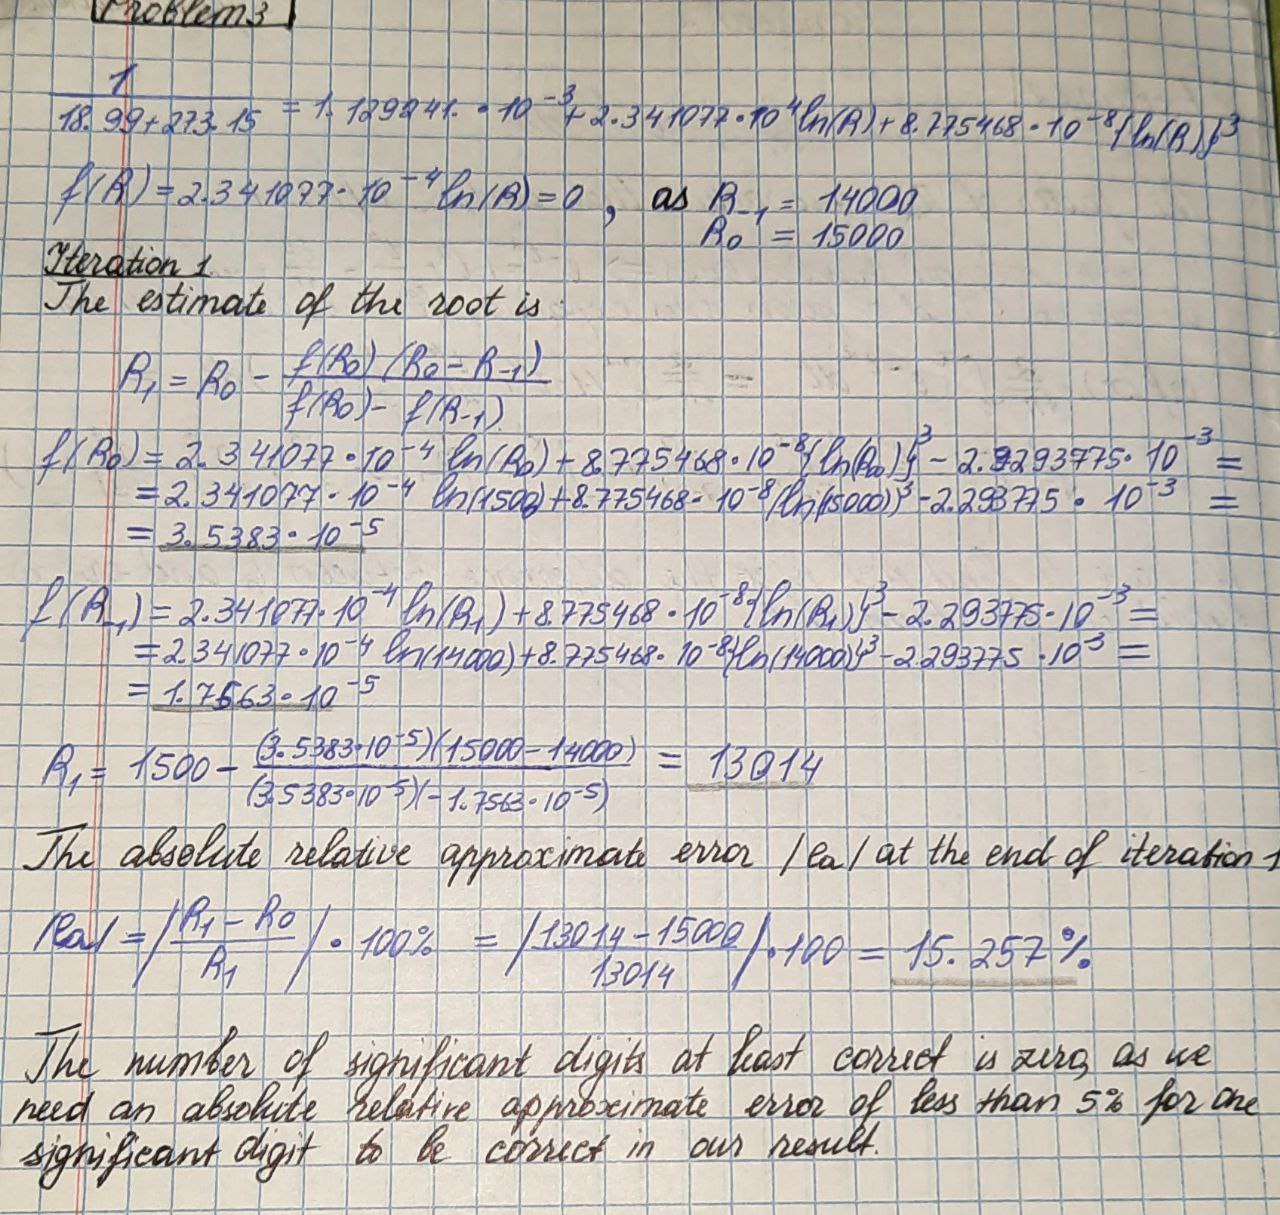 Problem3
1/(18.99+273.15) = 1.129241.·10^-3 + 2.341077·10^4 ln(R)+8.775468·10^-8{ln(R)}^3
f(R)=2.341077·10^-4 ln(R)=0, as R_-1 = 14000
R_0 = 15000
Iteration 1
The estimate of the root is
R_1 = R_0 - f(R_0)(R_0-R_-1)/(f(R_0)-f(R_-1))
f(R_0)=2.341077·10^-4 ln(R_0)+8.775468·10^-8{ln(R_0)}^3-2.9293775·10^-3=
=2.341077·10^-4 ln(1500)+8.775468·10^-8(ln(15000))^3-2.293775·10^-3 =
= 3.5383·10^-5
f(R_-1)=2.341077·10^-4 ln(R_1)+8.775468·10^-8{ln(R_1)}^3-2.293775·10^-3=
=2.341077·10^-4 ln(14000)+8.775468·10^-8{ln(14000)}^3-2.293775·10^-3=
= 1.7563·10^-5
R_1 = 1500 - (3.5383·10^-5)(15000-14000)/(3.5383·10^-5)(-1.7563·10^-5) = 13014
The absolute relative approximate error |ea| at the end of iteration 1
|ea| = |(R_1-R_0)/R_1|·100% = |(13014-15000)/13014|·100 = 15.257%
The number of significant digits at least correct is zero, as we
need an absolute relative approximate error of less than 5% for one
significant digit to be correct in our result.